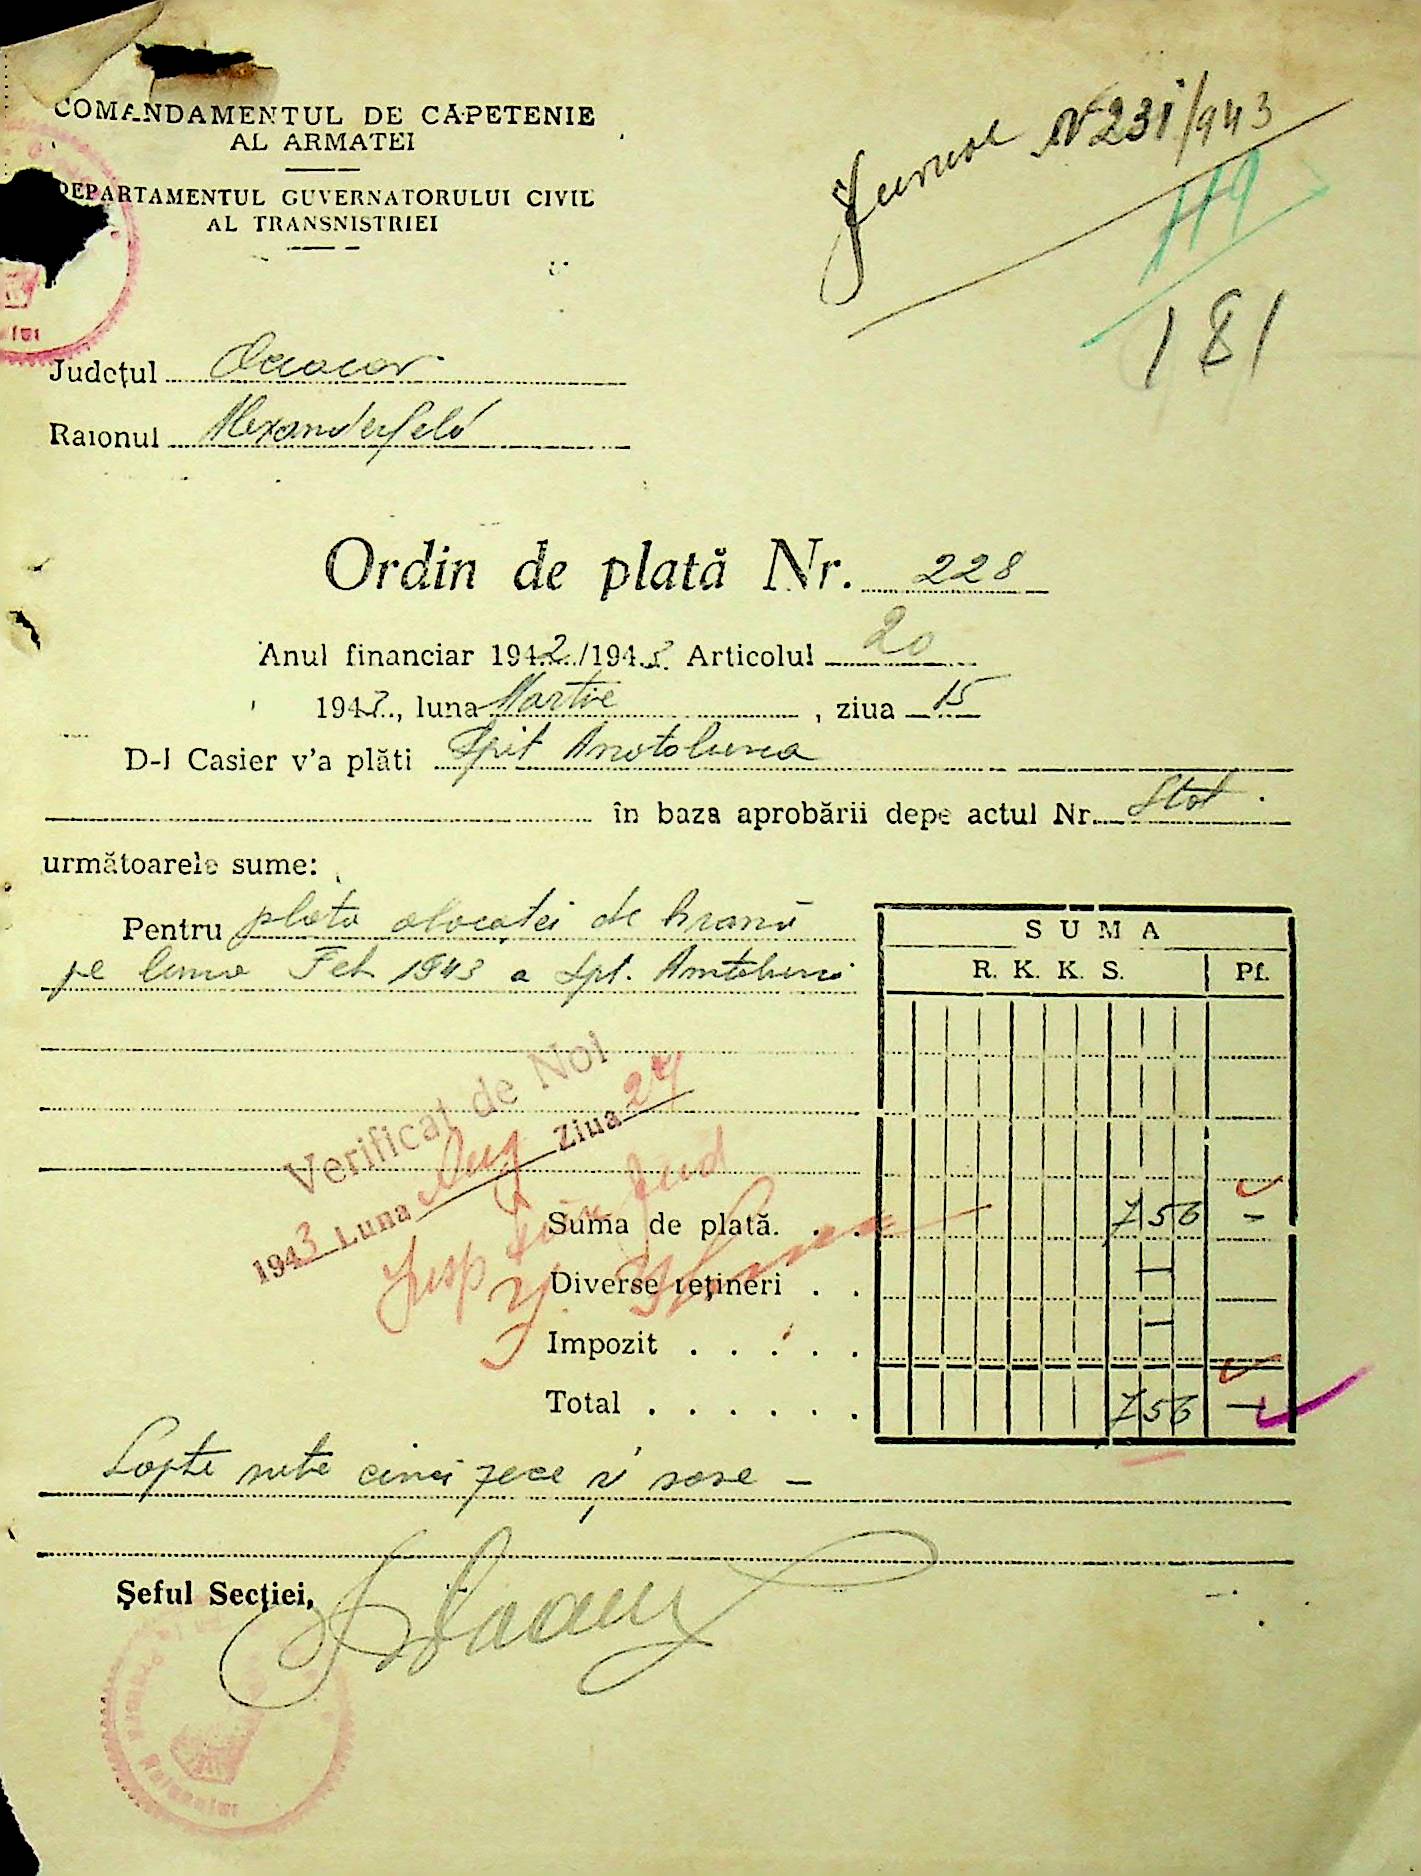 COMANDAMENTUL DE CAPETENIE
AL ARMATEI
DEPARTAMENTUL GUVERNATORULUI CIVIL
AL TRANSNISTRIEI
Jurnal N 231/943
119
181
Județul Oceacov
Raionul Alexanderfeld
Ordin de plată Nr. 228
Anul financiar 1942/1943 Articolul 20
1943, luna Martie, ziua 15
D-l Casier v'a plăti Spit Anatolievca
în baza aprobării depe actul Nr. Stat
următoarele sume:
Pentru plata alocației de hrană
pe luna Feb 1943 a Spt.
SUMA
R. K. K. S. Pf.
Verificat de Noi
1943 Luna Aug Ziua 27
Insp Fin Jud
Suma de plată. . . 756 –
Diverse rețineri . . —
Impozit . . . . . —
Total . . . . . . 756 —
Șapte sute cinci zece și șase –
Șeful Secției,